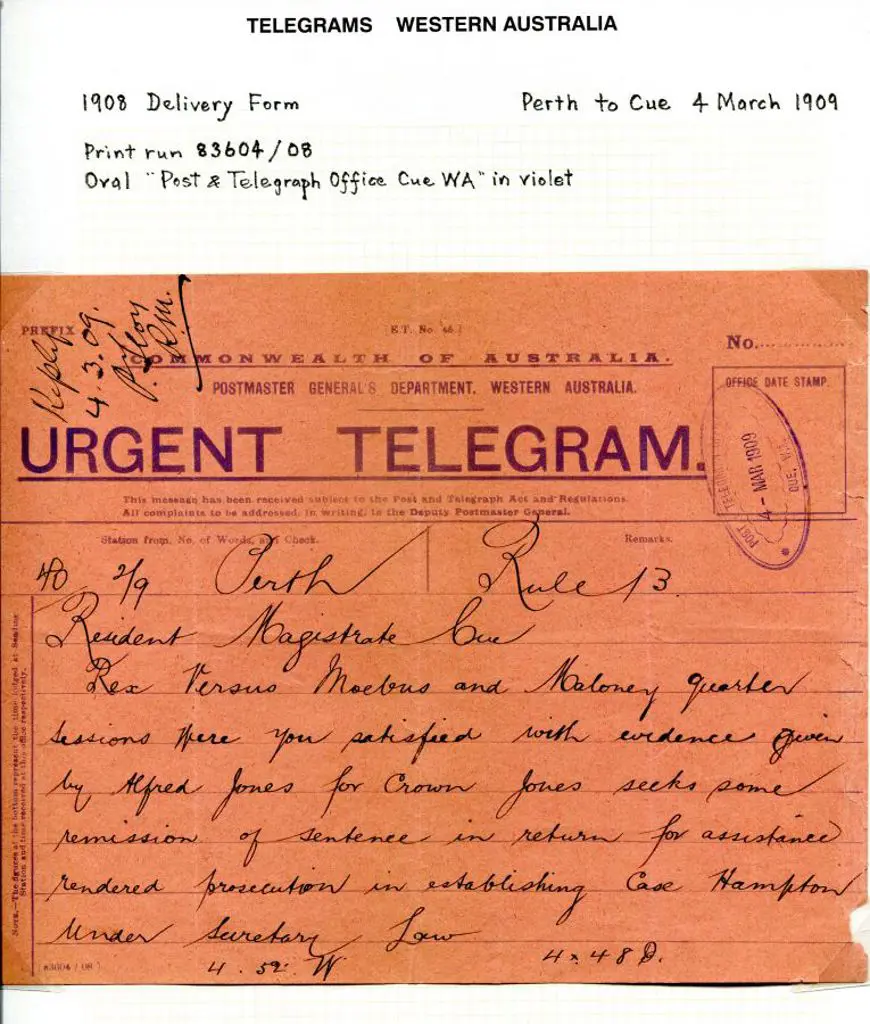 TELEGRAMS WESTERN AUSTRALIA
1908 Delivery Form
Perth to Cue 4 March 1909
Print run 83604/08
Oval "Post & Telegraph Office Cue WA" in violet
4.3.09.
R.M.
PREFIX
E.T. No. 46.
No.
COMMONWEALTH OF AUSTRALIA.
POSTMASTER GENERAL'S DEPARTMENT. WESTERN AUSTRALIA.
OFFICE DATE STAMP.
URGENT TELEGRAM.
POST TELEGRAPH
4 - MAR 1909
CUE. W.A.
This message has been received subject to the Post and Telegraph Act and Regulations.
All complaints to be addressed, in writing, to the Deputy Postmaster General.
Station from, No. of Words, and Check.
Remarks.
40 2/9 Perth Rule 13
Resident Magistrate Cue
Rex Versus Moebus and Maloney quarter
sessions Were you satisfied with evidence given
by Alfred Jones for Crown Jones seeks some
remission of sentence in return for assistance
rendered prosecution in establishing Case Hampton
Under Secretary Law
4.52 W
4.48 D.
NOTE.—The figures at the bottom represent the time lodged at Sending
Station and time received at this office respectively.
83604/08